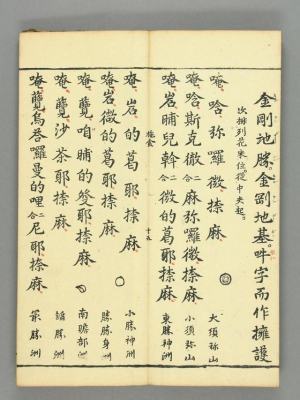 金剛地勝。金剛地基。吽字而作擁護
次排列花米位。從中央起。
唵哈弥囉徵捺麻 大須弥山
唵哈斯克徹二合麻弥囉徵捺麻 小須弥山
唵岩晡兒斡二合徵的葛耶捺麻 東勝神洲
施食 十五
唵岩的葛耶捺麻 小勝神洲
唵岩微的葛耶捺麻 勝勝身洲
唵覽咱晡的耶捺麻 南贍部洲
唵覽沙茶耶捺麻 諂勝洲
唵覽烏答囉曼的哩二合尼耶捺麻 最勝洲